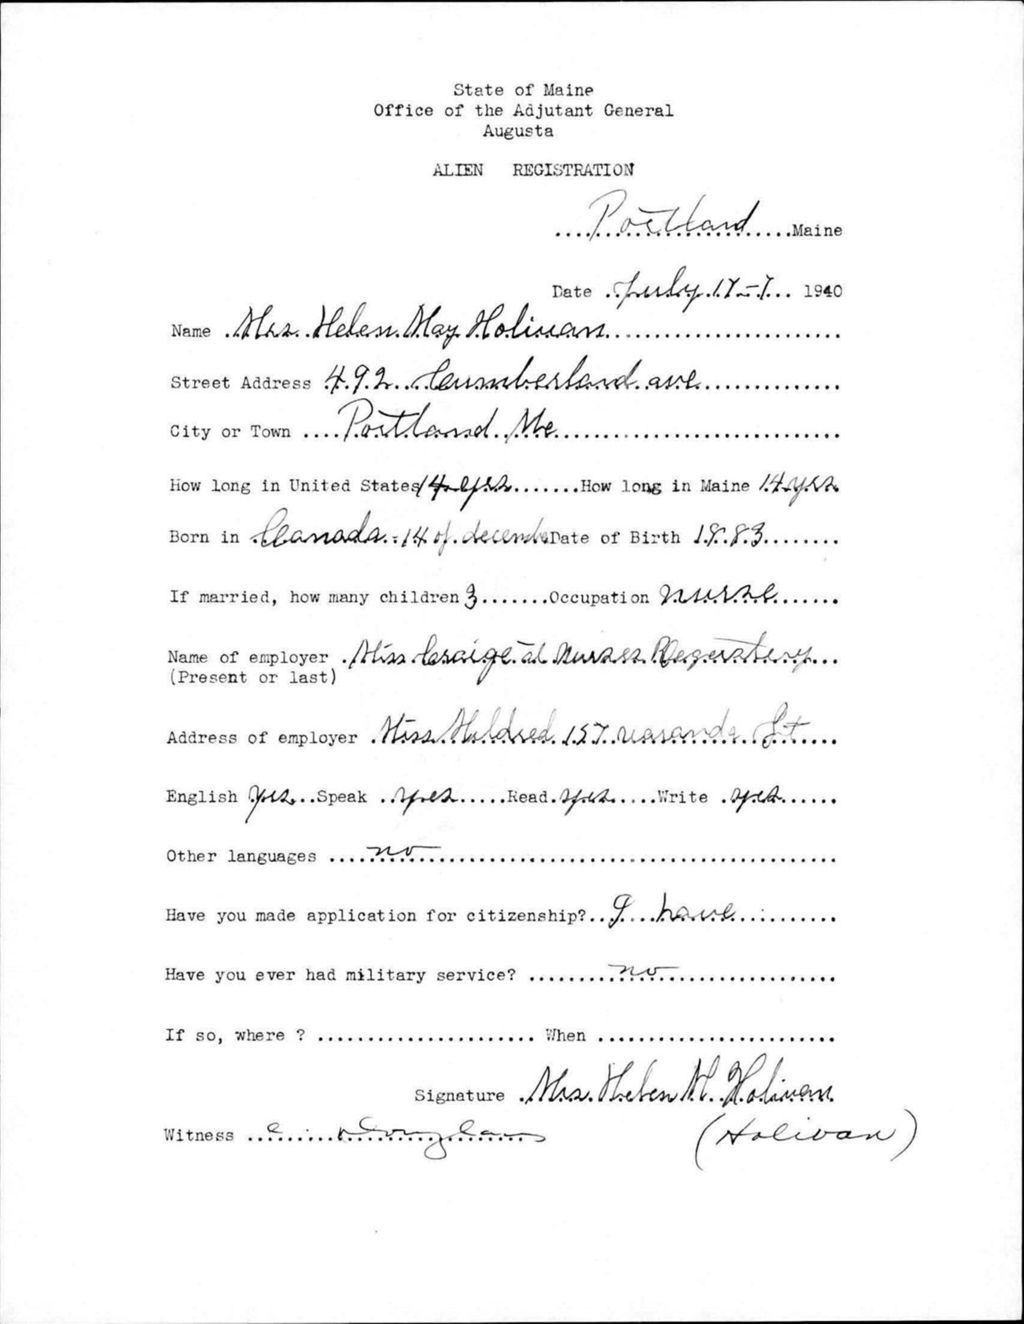 State of Maine
Office of the Adjutant General
Augusta
ALIEN REGISTRATION
Portland Maine
Date July 1940
Name Mrs. Helen May Holivan
Street Address 492 Cumberland ave
City or Town Portland Me
How long in United States 14 yrs How long in Maine 14 yrs
Born in Canada - 14 of decembe Date of Birth 1883
If married, how many children 3 Occupation nurse
Name of employer Miss Craige at Nurses
(Present or last)
Address of employer Miss Mildred 157 St
English Yes Speak yes Read yes Write yes
Other languages no
Have you made application for citizenship? I have
Have you ever had military service? no
If so, where ? When
Signature Mrs. Helen M. Holivan
Witness Douglass
(Holivan)